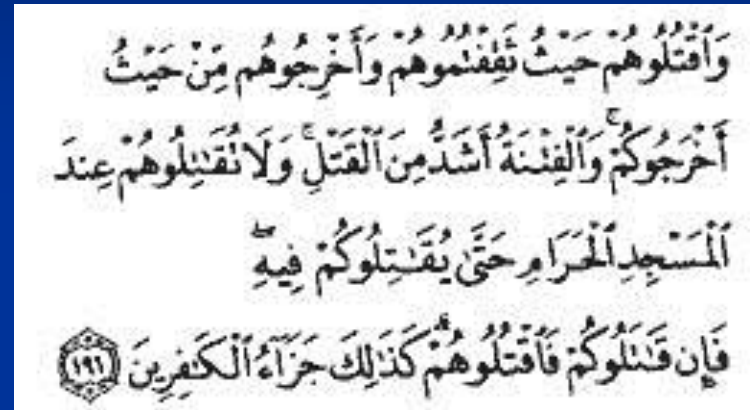 وَٱقْتُلُوهُمْ حَيْثُ ثَقِفْتُمُوهُمْ وَأَخْرِجُوهُم مِّنْ حَيْثُ
أَخْرَجُوكُمْ ۚ وَٱلْفِتْنَةُ أَشَدُّ مِنَ ٱلْقَتْلِ ۚ وَلَا تُقَـٰتِلُوهُمْ عِندَ
ٱلْمَسْجِدِ ٱلْحَرَامِ حَتَّىٰ يُقَـٰتِلُوكُمْ فِيهِ ۖ
فَإِن قَـٰتَلُوكُمْ فَٱقْتُلُوهُمْ ۗ كَذَٰلِكَ جَزَآءُ ٱلْكَـٰفِرِينَ ١٩١